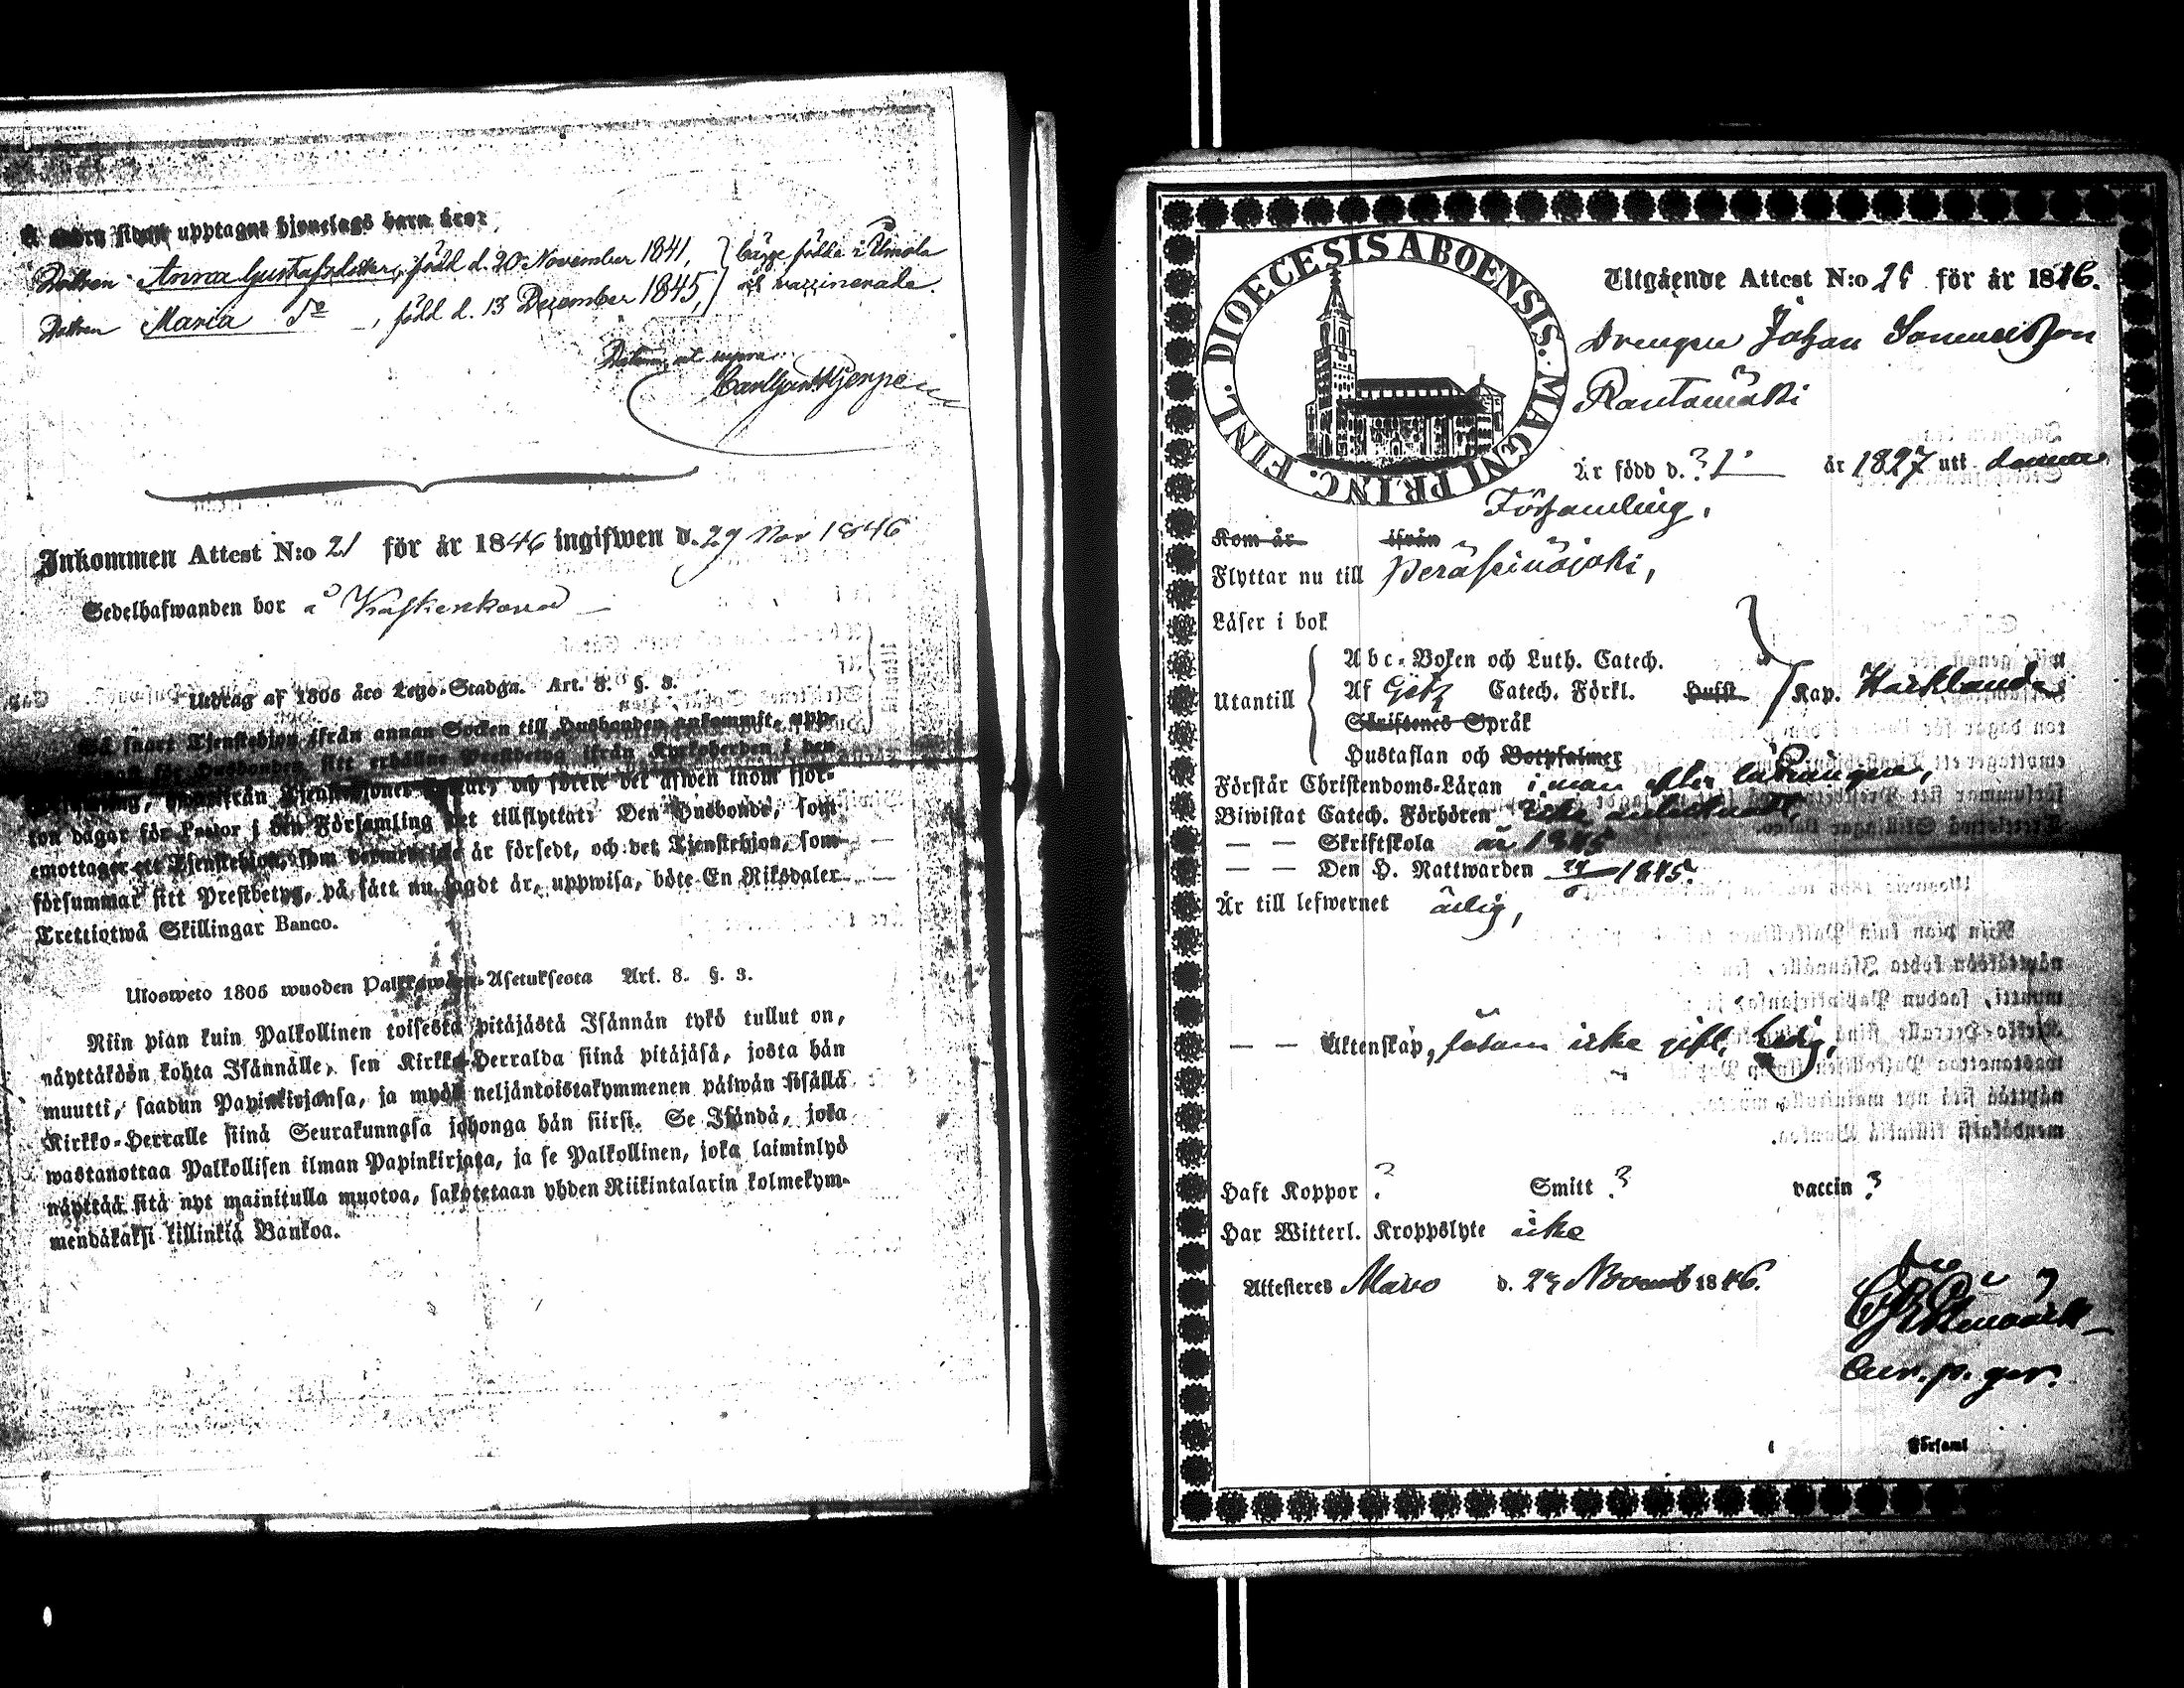 upptagne hjonelags barn äro:
Dottren Anna Gustafsdotter, född d. 20 November 1841,
Dottren Maria Do, född d. 13 December 1845,
bägge födde i Ilmola
och vaccinerade.
Datum ut supra.
Inkommen Attest N:o 21 för år 1846 ingifwen d. 29 Nov 1846
Sedelhafwanden bor å
Utdrag af 1805 års Lego-Stadga. Art. 8. §. 3.
Så snart Tjenstehjon ifrån annan Socken till Husbonden ankommit, upp-
ton dagar för Pastor i den Församling det tillflyttat: Den Husbonde, som
emottager ett Tjenstehjon, som är försedt, och det Tjenstehjon, som
försummar sitt Prestbetyg, på sätt nu sagdt är, uppwisa, böte En Riksdaler
Trettiotwå Skillingar Banco.
Ulosweto 1805 wuoden Palkkawäen-Asetuksesta Art. 8. §. 3.
Niin pian kuin Palkollinen toisesta pitäjästä Isännän tykö tullut on,
näyttäköön kohta Isännälle, sen Kirkko-Herralda siinä pitäjäsä, josta hän
muutti, saadun Papinkirjansa, ja myös neljäntoistakymmenen päiwän sisällä
Kirkko-Herralle siinä Seurakunnasa johonga hän siirsi. Se Isändä, joka
wastanottaa Palkollisen ilman Papinkirjata, ja se Palkollinen, joka laiminlyö
näyttää sitä nyt mainitulla muotoa, sakotetaan yhden Riikintalarin kolmekym-
mendäkaksi killinkiä Bankoa.
DIOECESIS ABOENSIS. MAGNI PRINC. FINL.
Utgående Attest N:o för år 1846.
Drengen Johan Samuelsson
Rantamäki
Är född d. ? år 1827 uti denna
Församling,
Kom år ifrån
Flyttar nu till Peräseinäjoki,
Läser i bok
Utantill
Abc-Boken och Luth. Catech.
Af Catech. Förkl. Hufst. Kap.
Skriftenes Språk
Hustaflan och Botpsalmer
Förstår Christendoms-Läran i mån efter
Biwistat Catech. Förhören icke antecknadt,
— — Skriftskola år 1845
— — Den H. Nattwarden 1845.
Är till lefwernet ärlig,
— — Äktenskap, såsom icke gift, ledig,
Haft Koppor ? Smitt ? vaccin ?
Har Witterl. Kroppslyte icke
Attesteres Alavo d. Novemb 1846.
Församl